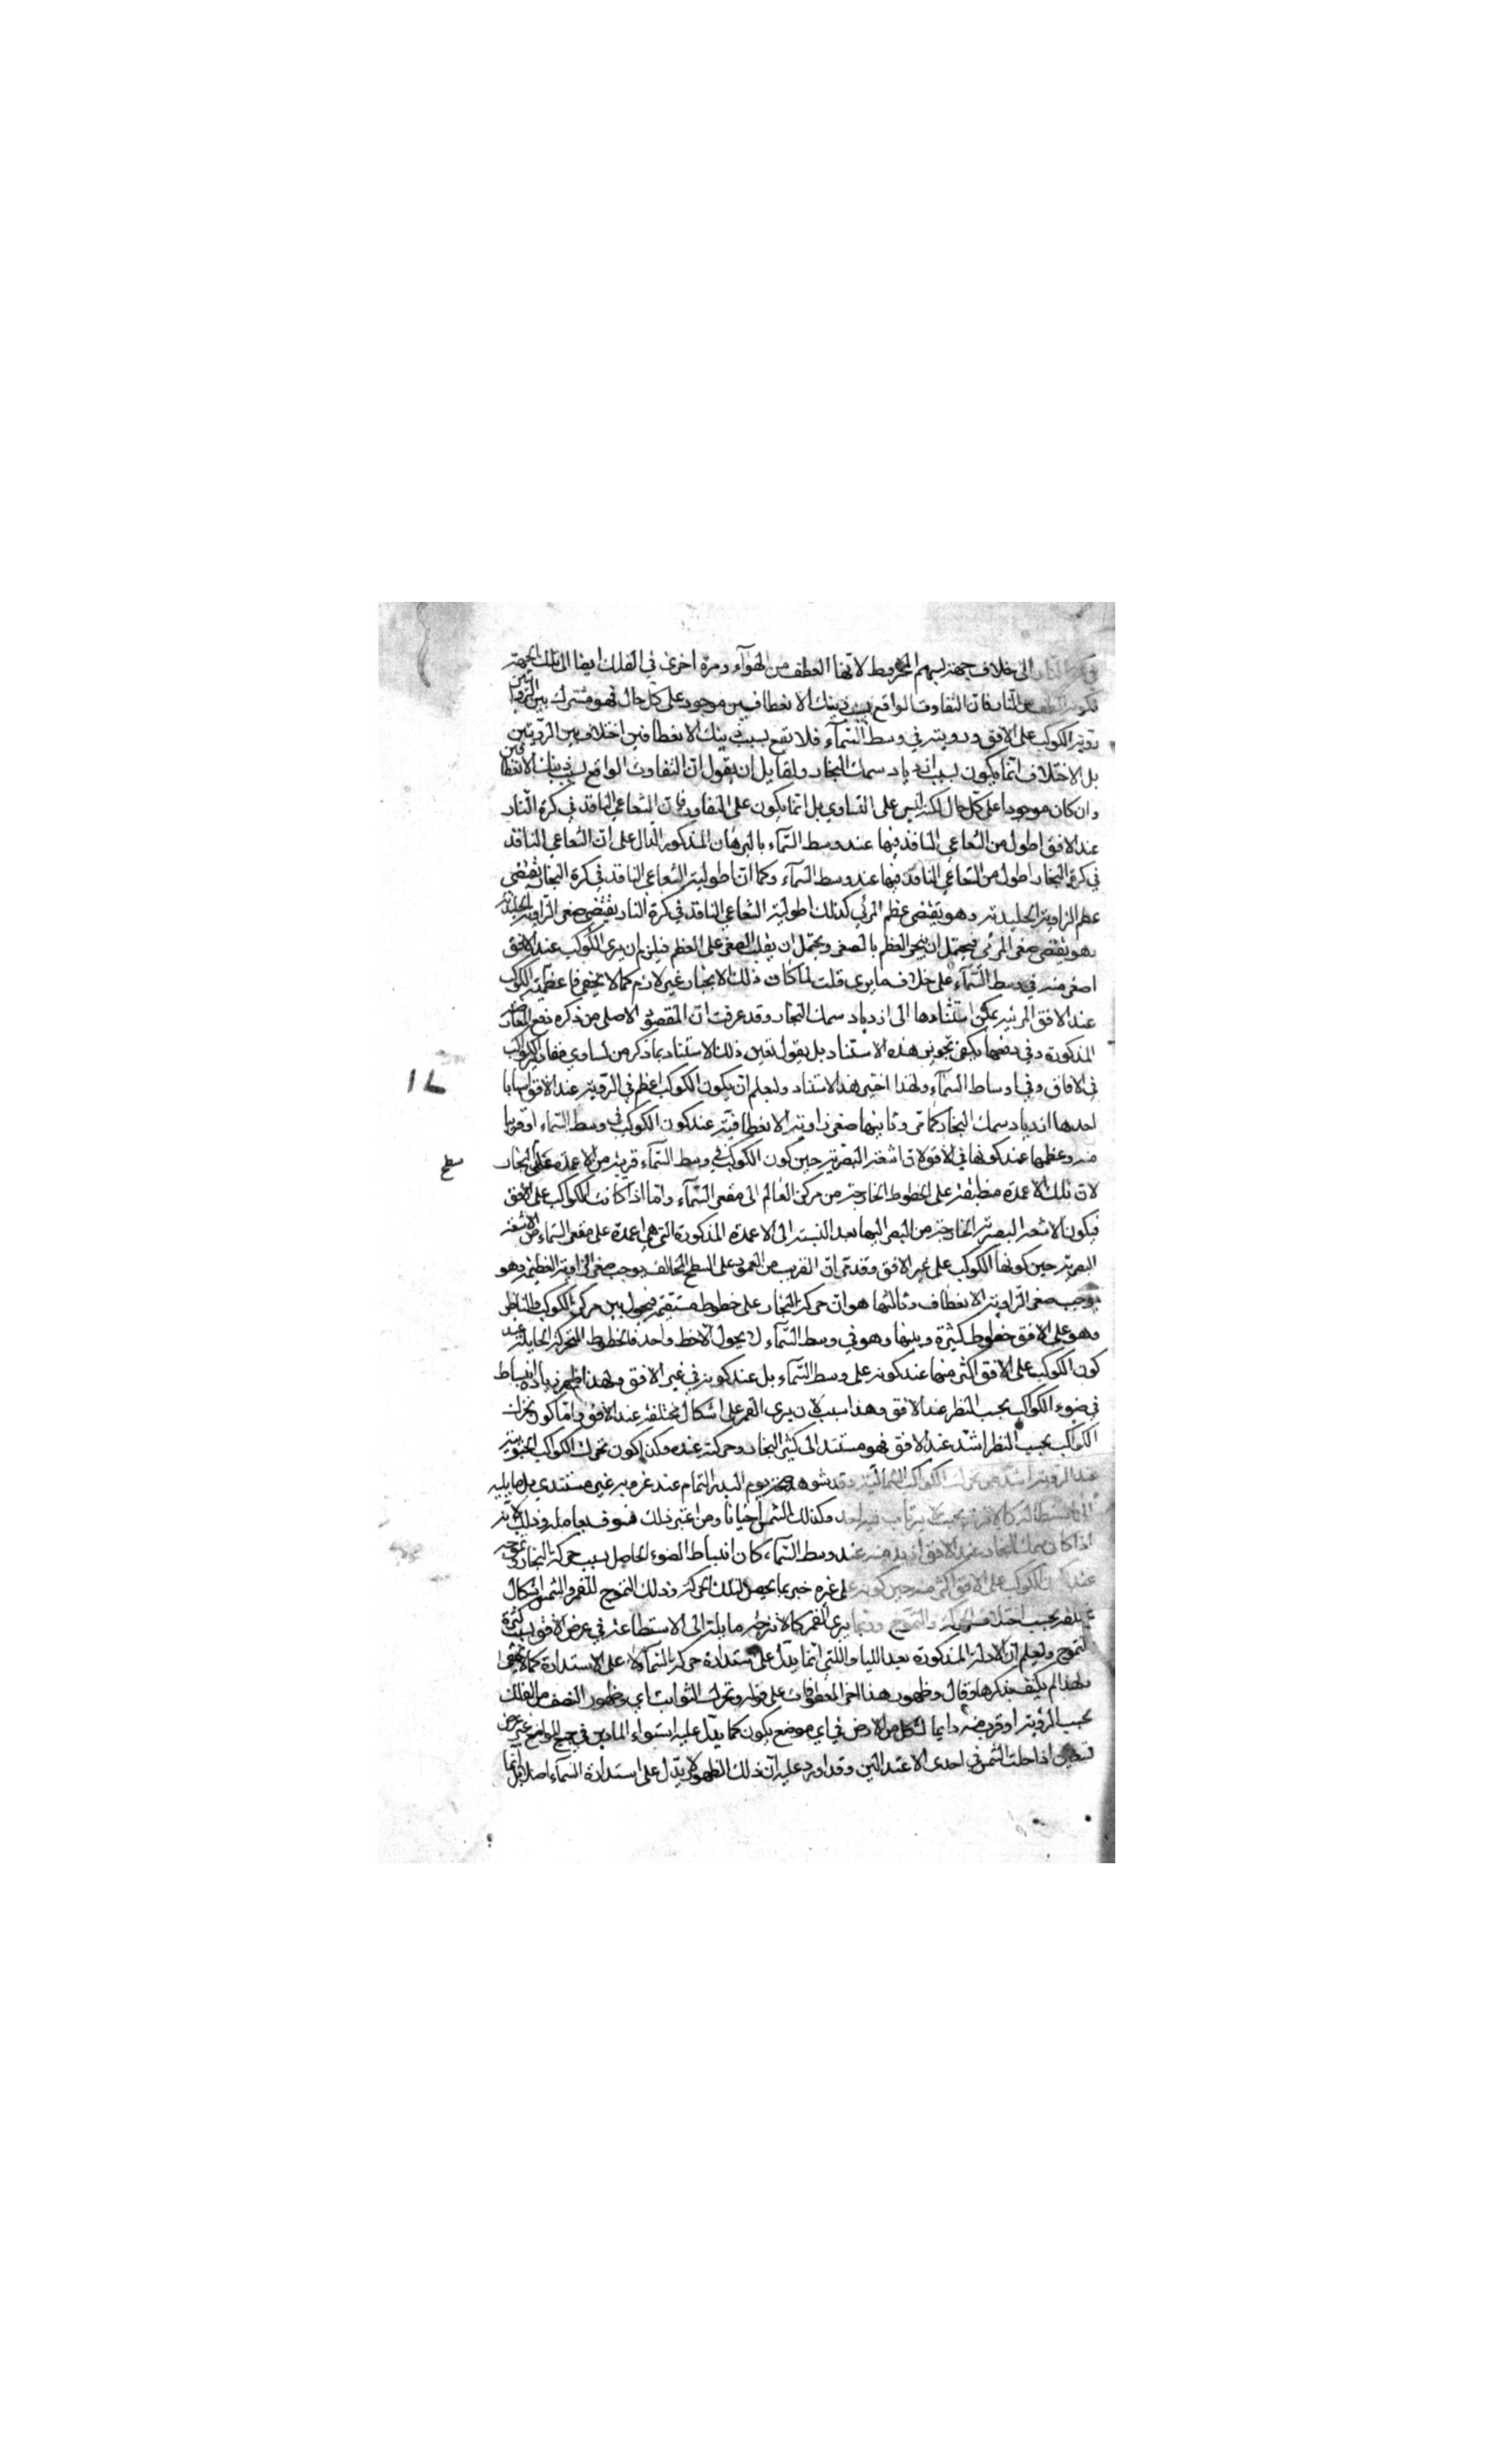 الى خلاف جهة لسهم المخروط لانها انعطف من الهوآء ومرة اخرى في الفلك ايضا الى تلك الجهة
النار فان التفاوت الواقع بسبب ذينك الانعطافين موجود على كل حال فهو مشترك بين الرؤيتين
رؤية الكوكب على الافق ورؤيته في وسط السّمآء فلا تقع بسبب ذينك الانعطافين اختلاف بين الرؤيتين
بل الاختلاف انما يكون بسبب ازدياد سمك البخار ولقايل ان يقول ان التفاوت الواقع بسبب ذينك الانعطافين
وان كان موجودا على كل حال لكنه ليس على التساوي بل انما يكون على التفاوت فان الشعاعي النافذ في كرة النار
عند الافق اطول من الشعاعي النافذ فيها عند وسط السّمآء بالبرهان المذكور الدال على ان الشعاعي النافذ
في كرة البخار اطول من الشعاعي النافذ فيها عند وسط السمآء وكما ان اطولية الشعاعي النافذ في كرة البخار تقتضي
عظم الزاوية الجليدية وهو يقتضي عظم المرئي كذلك اطولية الشعاعي النافذ في كرة النار يقتضي صغر الزاوية الجليدية
وهو يقتضي صغر المرئي فيحتمل ان ينجبر العظم بالصغر ويحتمل ان يغلب الصغر على العظم فيلزم ان يرى الكوكب عند الافق
اصغر منه في وسط السّمآء على خلاف ما يرى قلت لما كان ذلك الانجبار غير لازم كما لا يخفى فاعظمية الكوكب
عند الافق المرئية يمكن استنادها الى ازدياد سمك البخار وقد عرفت ان المقصود الاصلي من ذكره دفع المعارضة
المذكورة وفي دفعها يكفي تجويز هذه الاستناد بل يقول تعين ذلك الاستناد بما ذكر من تساوي مقادير الكواكب
في الافاق وفي اوساط السمآء ولهذا اختير هذا الاستناد وليعلم ان يكون الكوكب اعظم في الرؤية عند الافق اسبابا
احدها ازدياد سمك البخار كما مر وثانيها صغر زاوية الانعطافية عند كون الكوكب في وسط السّماء او قريبا
منه وعظمها عند كونها في الافق لان اشعة البصرية حين كون الكوكب في وسط السّمآء قريبة من الاعمدة على البخار
سطح
لان تلك الاعمدة منطبقة على الخطوط الخارجة من مركز العالم الى مقعر السّمآء واما اذا كانت الكواكب على الافق
فيكون الاشعة البصرية الخارجة من البصر اليها بعد النسبة الى الاعمدة المذكورة التي هي اعمدة على مقعر السّماء من الاشعة
البصرية حين كونها الكوكب على غير الافق وقد تبين ان القرب من العمود على السطح المخالف يوجب صغر الزاوية العظيمة وهو
يوجب صغر الزاوية الانعطاف وثالثها هو ان حركة البخار على خطوط مستقيمة فيحول بين مركز الكوكب والناظر
وهو على الافق خطوط كثيرة وبينها وهو في وسط السّمآء لا يحول الا خط واحد فالخطوط المتحركة الحايلة عند
كون الكوكب على الافق اكثر منها عند كونه على وسط السّمآء بل عند كونه في غير الافق ولهذا يظهر زيادة انبساط
في ضوء الكواكب بحسب النظر عند الافق وهذا سبب لان يرى القمر على اشكال مختلفة عند الافق واما كون تحرك
الكواكب بحسب النظر اشد عند الافق فهو مستند الى كثير البخار وحركته عنده ولكن كون تحرك الكواكب الجنوبية
عند الرؤية اشد من تحرك الكواكب الشمالية وقد شوهد يوم البدر التمام عند غروبه غير مستدير بل مايلا
الى استطالة وكذلك الشمس احيانا ومن اعتبر ذلك فسوف يعامله وذلك لانه
اذا كان سمك البخار عند الافق ازيد منه عند وسط السّمآء كان انبساط الضوء الحاصل بسبب حركة البخار وتموجه
عند كون الكوكب على الافق اكثر منه حين كونه على غيره خبر بما يحصل لتلك الحركة وذلك التموج للقمر والشمس اشكال
مختلفة بحسب اختلاف الحركة والتموج وربما يرى القمر كالاترجة مايلة الى الاستطالة في عرض الافق بسبب كثرة
التموج وليعلم ان الادلة المذكورة بعد اللتيا واللتي انما يدل على استدارة حركة السّمآء لا على الاستدارة كما لا يخفى
ولهذا لم يكتف بذكرها وقال وظهور هذا اخر المعطوفات على قوله وتحرك الثوابت اي وظهور النصف من الفلك
بحسب الرؤية او قريب منه دايما لشكل من الارض في اي موضع يكون كما يدل عليه استواء الملوين في جميع المواضع غير عرض
تسعين اذا حلت الشمس في احدى الاعتدالين وقد اورد عليه ان ذلك الظهور لا يدل على استدارة السّمآء اصلا بل انما